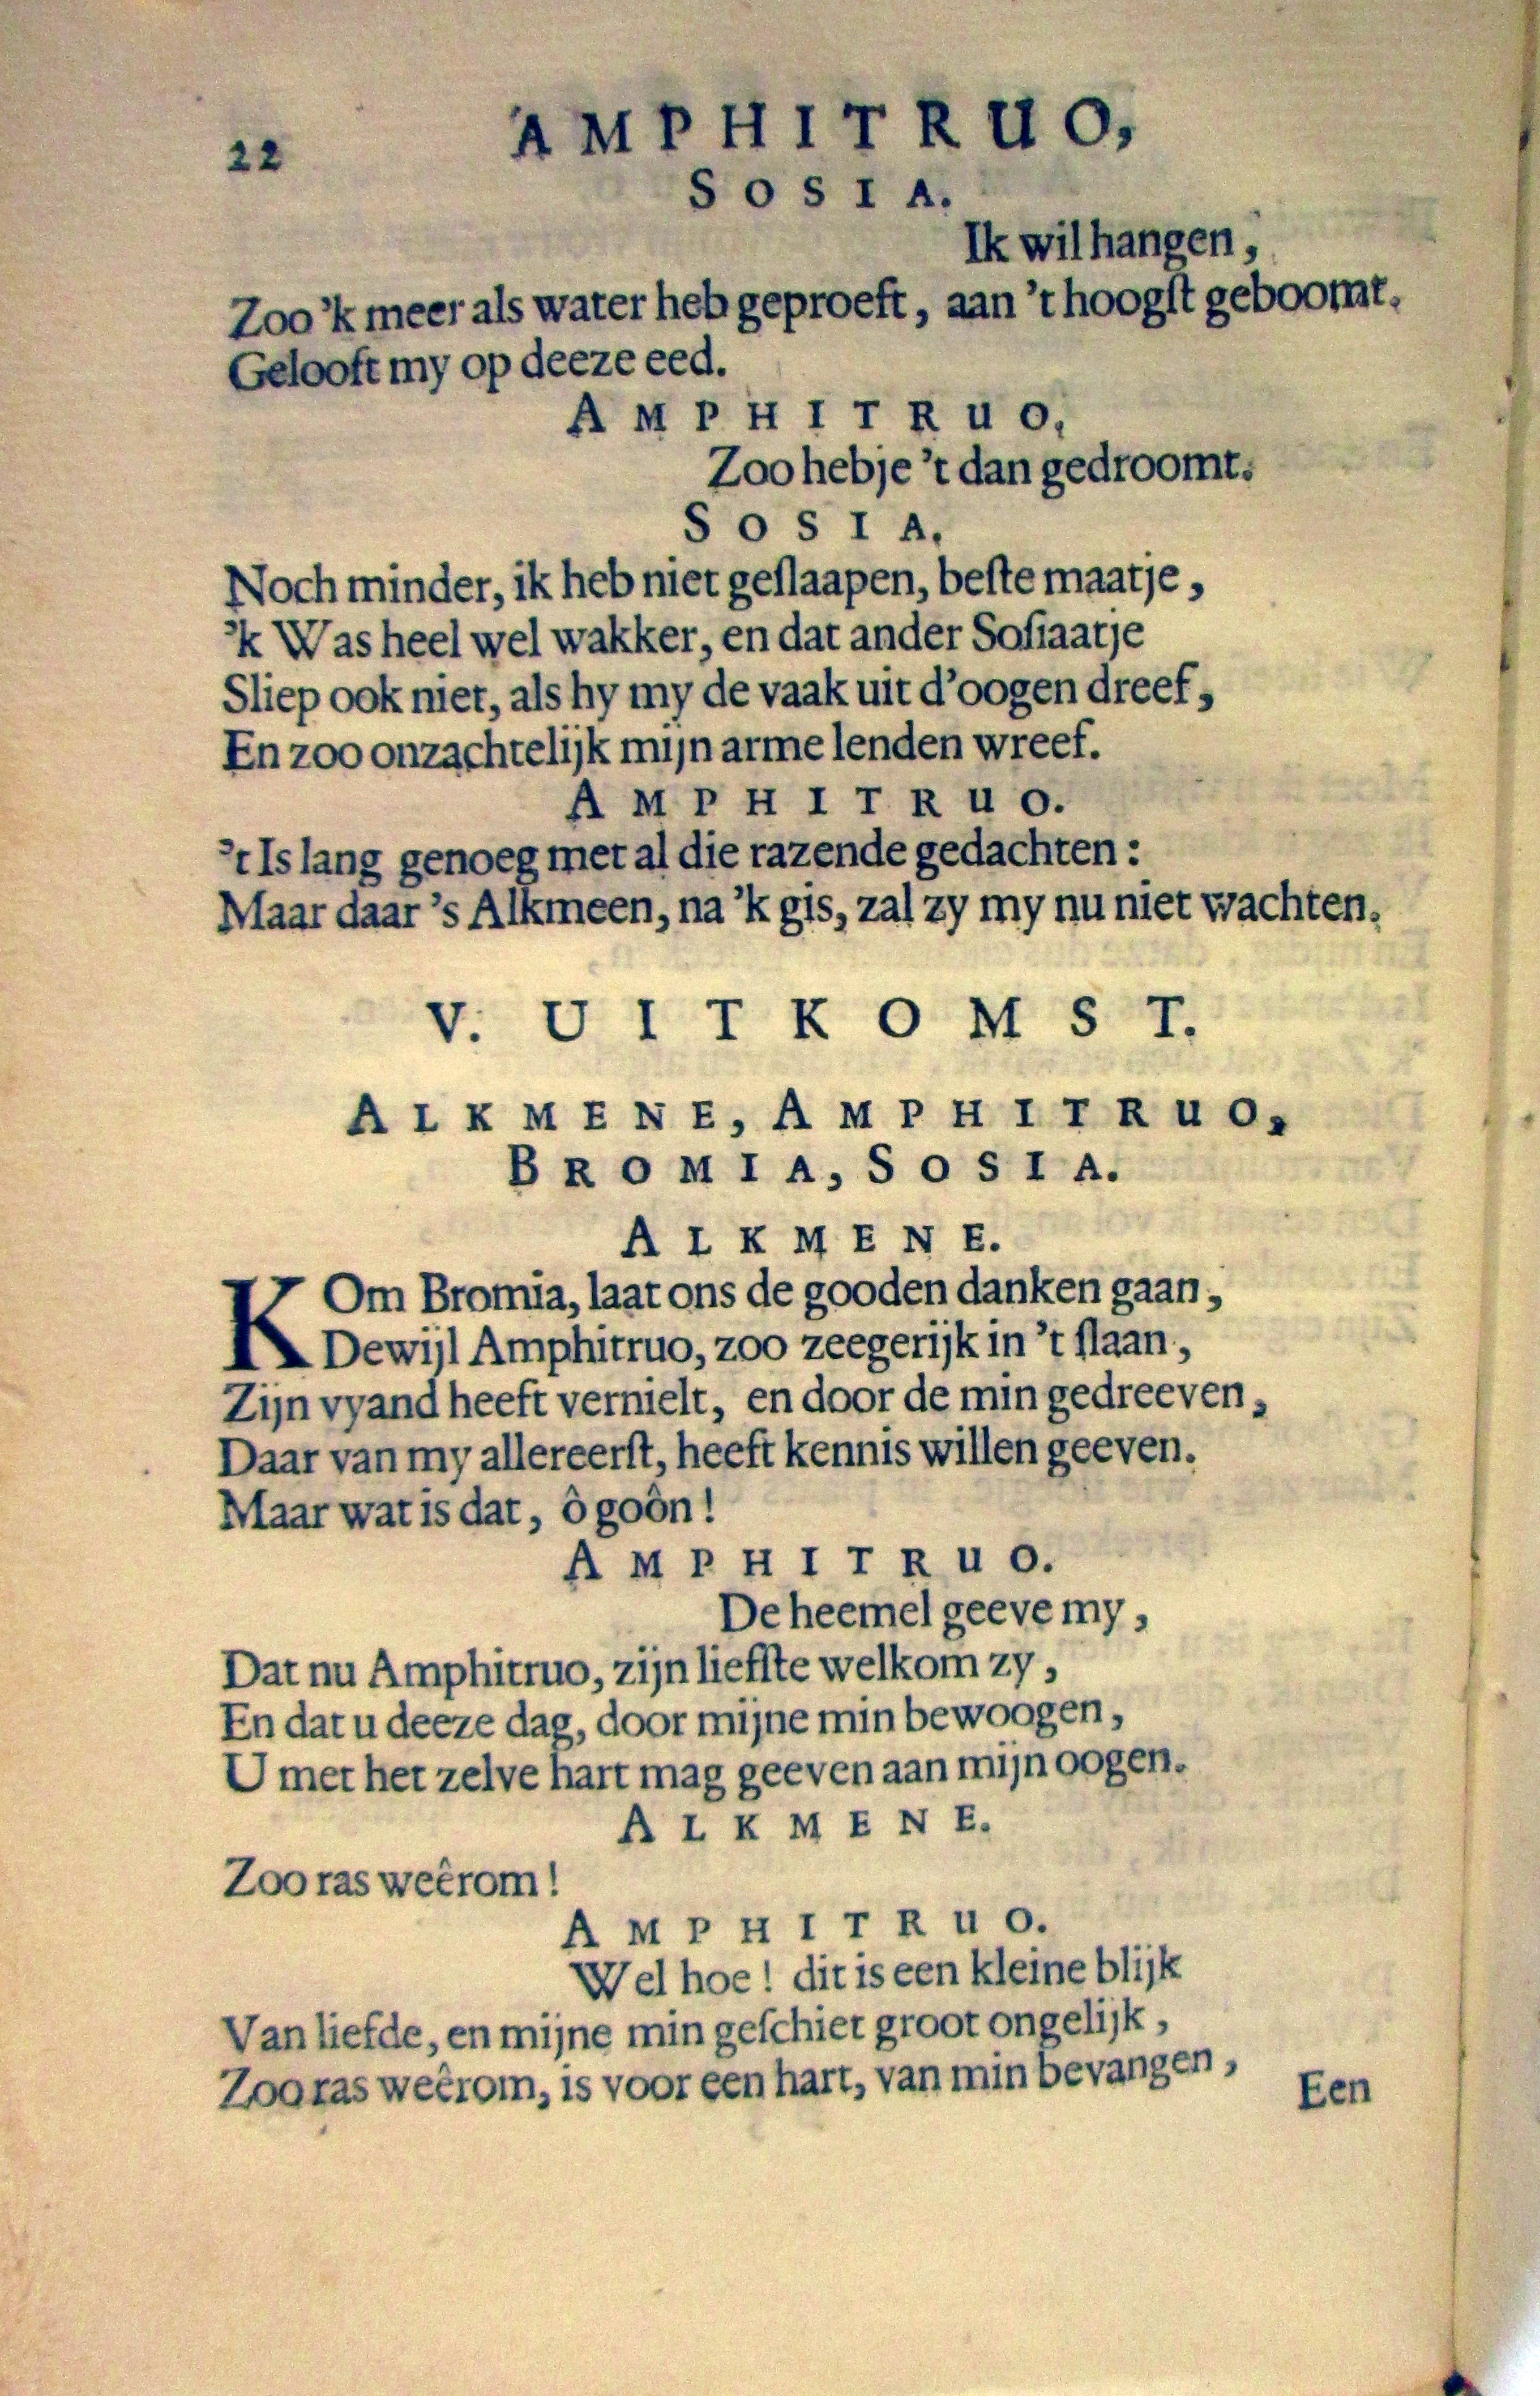 22
AMPHITRUO,
SOSIA.
Ik wil hangen,
Zoo 'k meer als water heb geproeft, aan 't hoogſt geboomt.
Gelooft my op deeze eed.
AMPHITRUO,
Zoo hebje 't dan gedroomt.
SOSIA.
Noch minder, ik heb niet geſlaapen, beſte maatje,
'k Was heel wel wakker, en dat ander Soſiaatje
Sliep ook niet, als hy my de vaak uit d'oogen dreef,
En zoo onzachtelijk mijn arme lenden wreef.
AMPHITRUO.
't Is lang genoeg met al die razende gedachten:
Maar daar 's Alkmeen, na 'k gis, zal zy my nu niet wachten.
V. UITKOMST.
ALKMENE, AMPHITRUO,
BROMIA, SOSIA.
ALKMENE.
KOm Bromia, laat ons de gooden danken gaan,
Dewijl Amphitruo, zoo zeegerijk in 't ſlaan,
Zijn vyand heeft vernielt, en door de min gedreeven,
Daar van my allereerſt, heeft kennis willen geeven.
Maar wat is dat, ô goôn!
AMPHITRUO.
De heemel geeve my,
Dat nu Amphitruo, zijn liefſte welkom zy,
En dat u deeze dag, door mijne min bewoogen,
U met het zelve hart mag geeven aan mijn oogen.
ALKMENE.
Zoo ras weêrom!
AMPHITRUO.
Wel hoe! dit is een kleine blijk
Van liefde, en mijne min geſchiet groot ongelijk,
Zoo ras weêrom, is voor een hart, van min bevangen,
Een